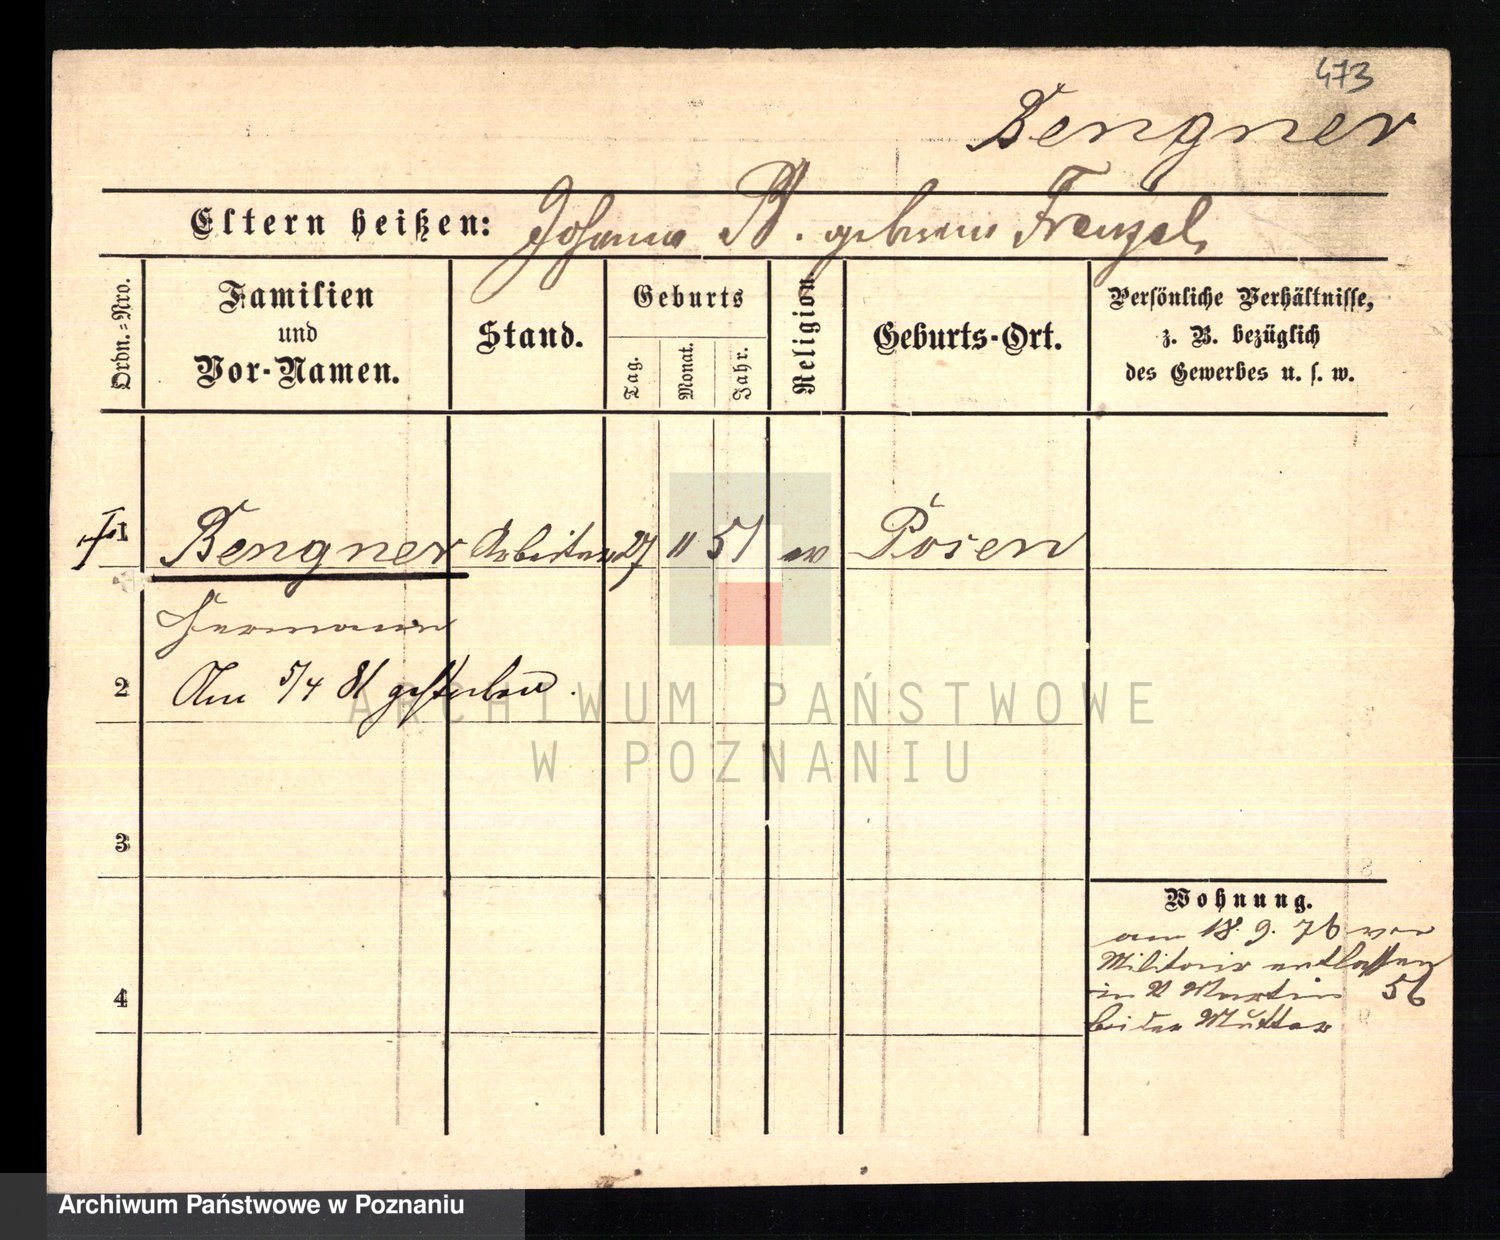 473
Bengner
Eltern heißen: Johanna B. geborene Frenzel
Ordn.-Nro.
Familien und Vor-Namen.
Stand.
Geburts
Tag. Monat. Jahr.
Religion.
Geburts-Ort.
Persönliche Verhältnisse, z. B. bezüglich des Gewerbes u. s. w.
1 Bengner Arbeiter 27 11 51 ev Posen
Hermann
2 Am 5/4 81 gestorben.
ARCHIWUM PAŃSTWOWE
W POZNANIU
3
Wohnung.
am 18. 9. 76 von
Militair entlassen
in St Martin 56
bei der Mutter
4
Archiwum Państwowe w Poznaniu